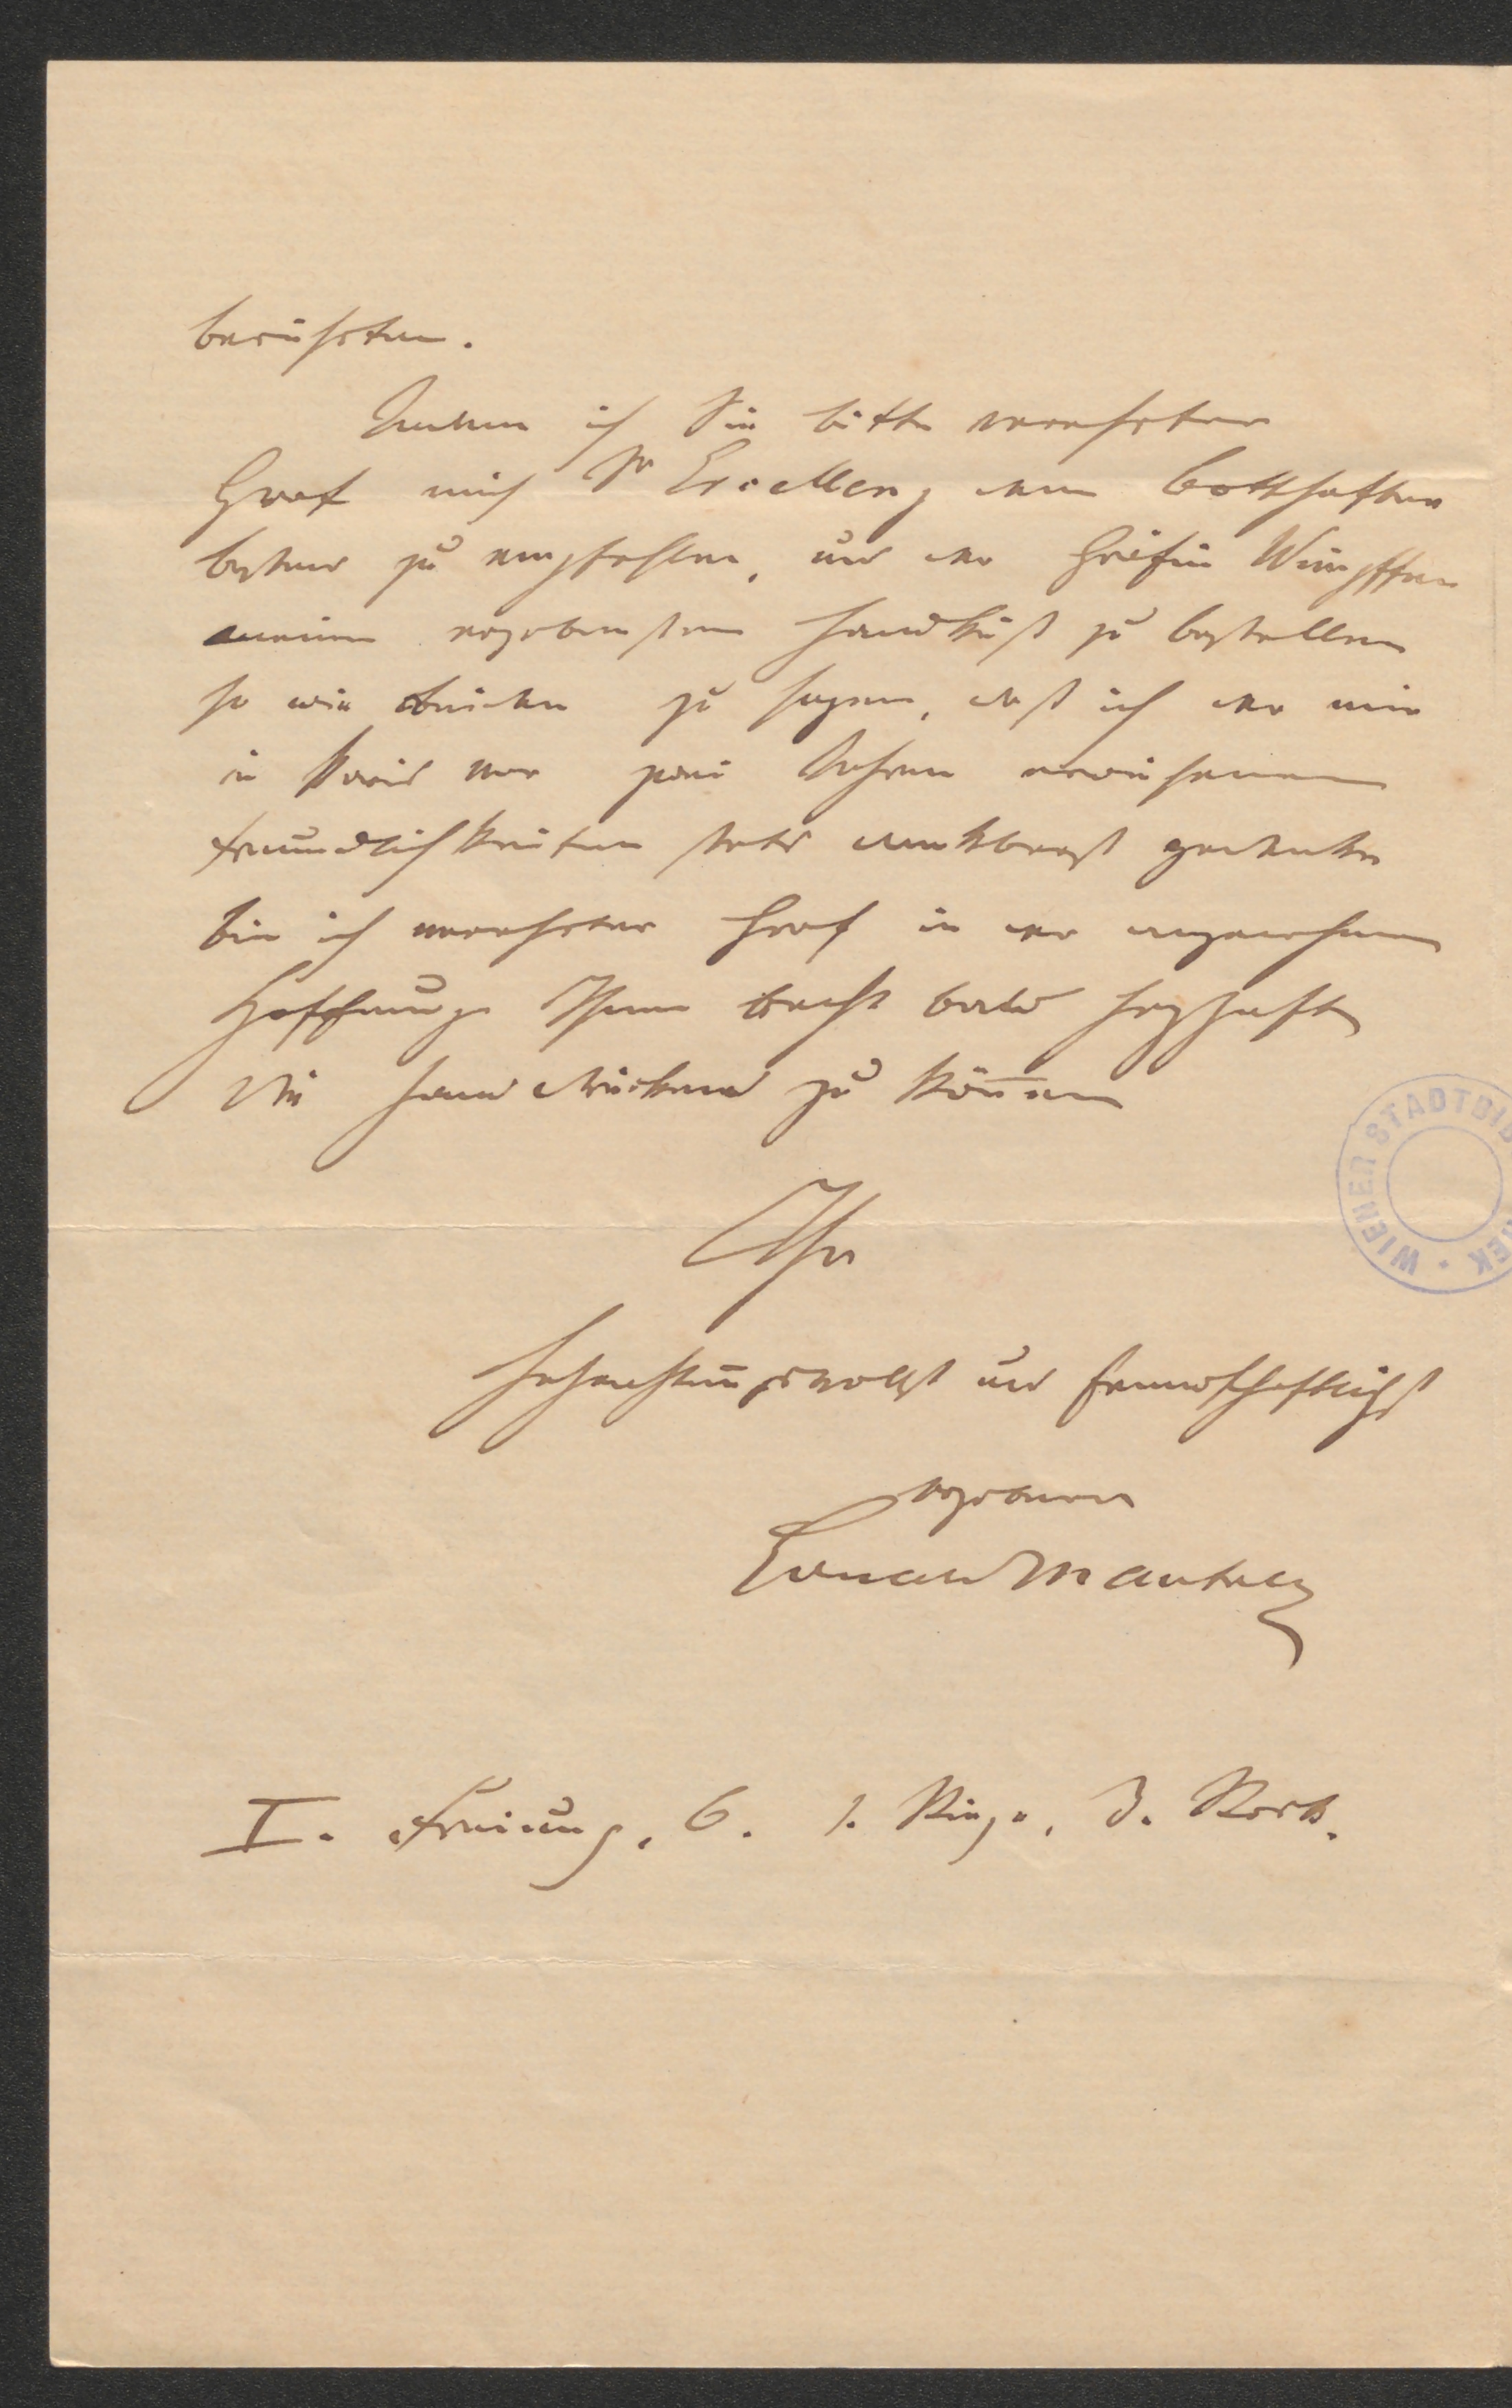 berührten.
Indem ich Sie bitte verehrter
Graf mich Sr Excellenz dem Botschafter
bestens zu empfehlen, und der Gräfin Wimpffen
meinen ergebensten Handkuß zu bestellen
so wie beiden zu sagen, daß ich der mir
in Paris vor zwei Jahren erwiesenen
Freundlichkeiten stets dankbarst gedenke
bin ich verehrter Graf in der angenehmen
Hoffnung Ihnen recht bald herzhaft
die Hand drücken zu können
Ihr
hochachtungsvollst und freundschaftlichst
ergebener
Eduard Mautner
I. Freiung, 6. 1. Stiege, 3. Stock.
WIENER STADTBIB
HEK